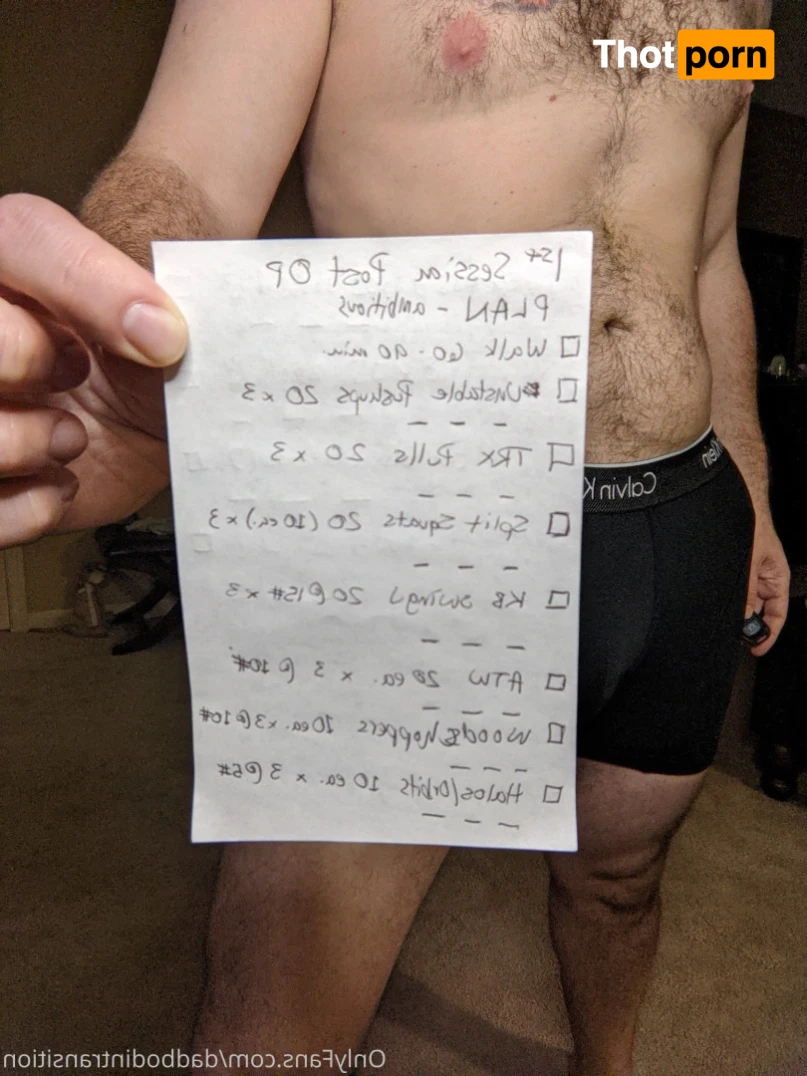 Thot porn
1st Session Post OP
PLAN - ambitious
Walk 60-90 min.
Unstable Pushups 20 x 3
TRX Pulls 20 x 3
Split Squats 20 (10 ea.) x 3
KB swings 20 @ 15# x 3
ATW 20 ea. x 3 @ 10#
Woodchoppers 10 ea. x 3 @ 10#
Halos/Orbits 10 ea. x 3 @ 5#
Calvin Klein
OnlyFans.com/dadbodintransition